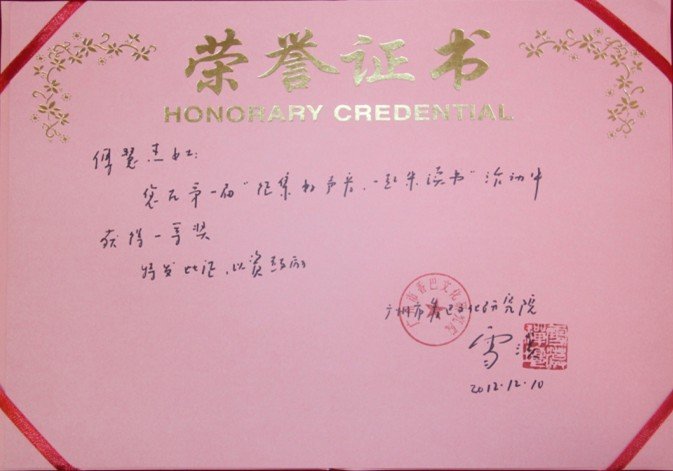 荣誉证书
HONORARY CREDENTIAL
傅慧杰女士:
您在第一届"征集好声音,一起来读书"活动中
获得一等奖
特发此证,以资鼓励
广州市香巴文化研究院
雪漠
2012.12.10